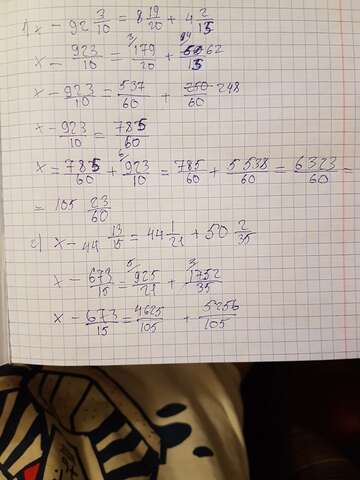 1) x - 92 3/10 = 8 19/20 + 4 2/15
x - 923/10 = 3/ 179/20 + 62/15
x - 923/10 = 537/60 + 248/60
x - 923/10 = 785/60
x = 785/60 + 923/10 = 785/60 + 5538/60 = 6323/60 =
= 105 23/60
2) x - 44 13/15 = 44 1/21 + 50 2/35
x - 673/15 = 5/ 925/21 + 3/ 1752/35
x - 673/15 = 4625/105 + 5256/105